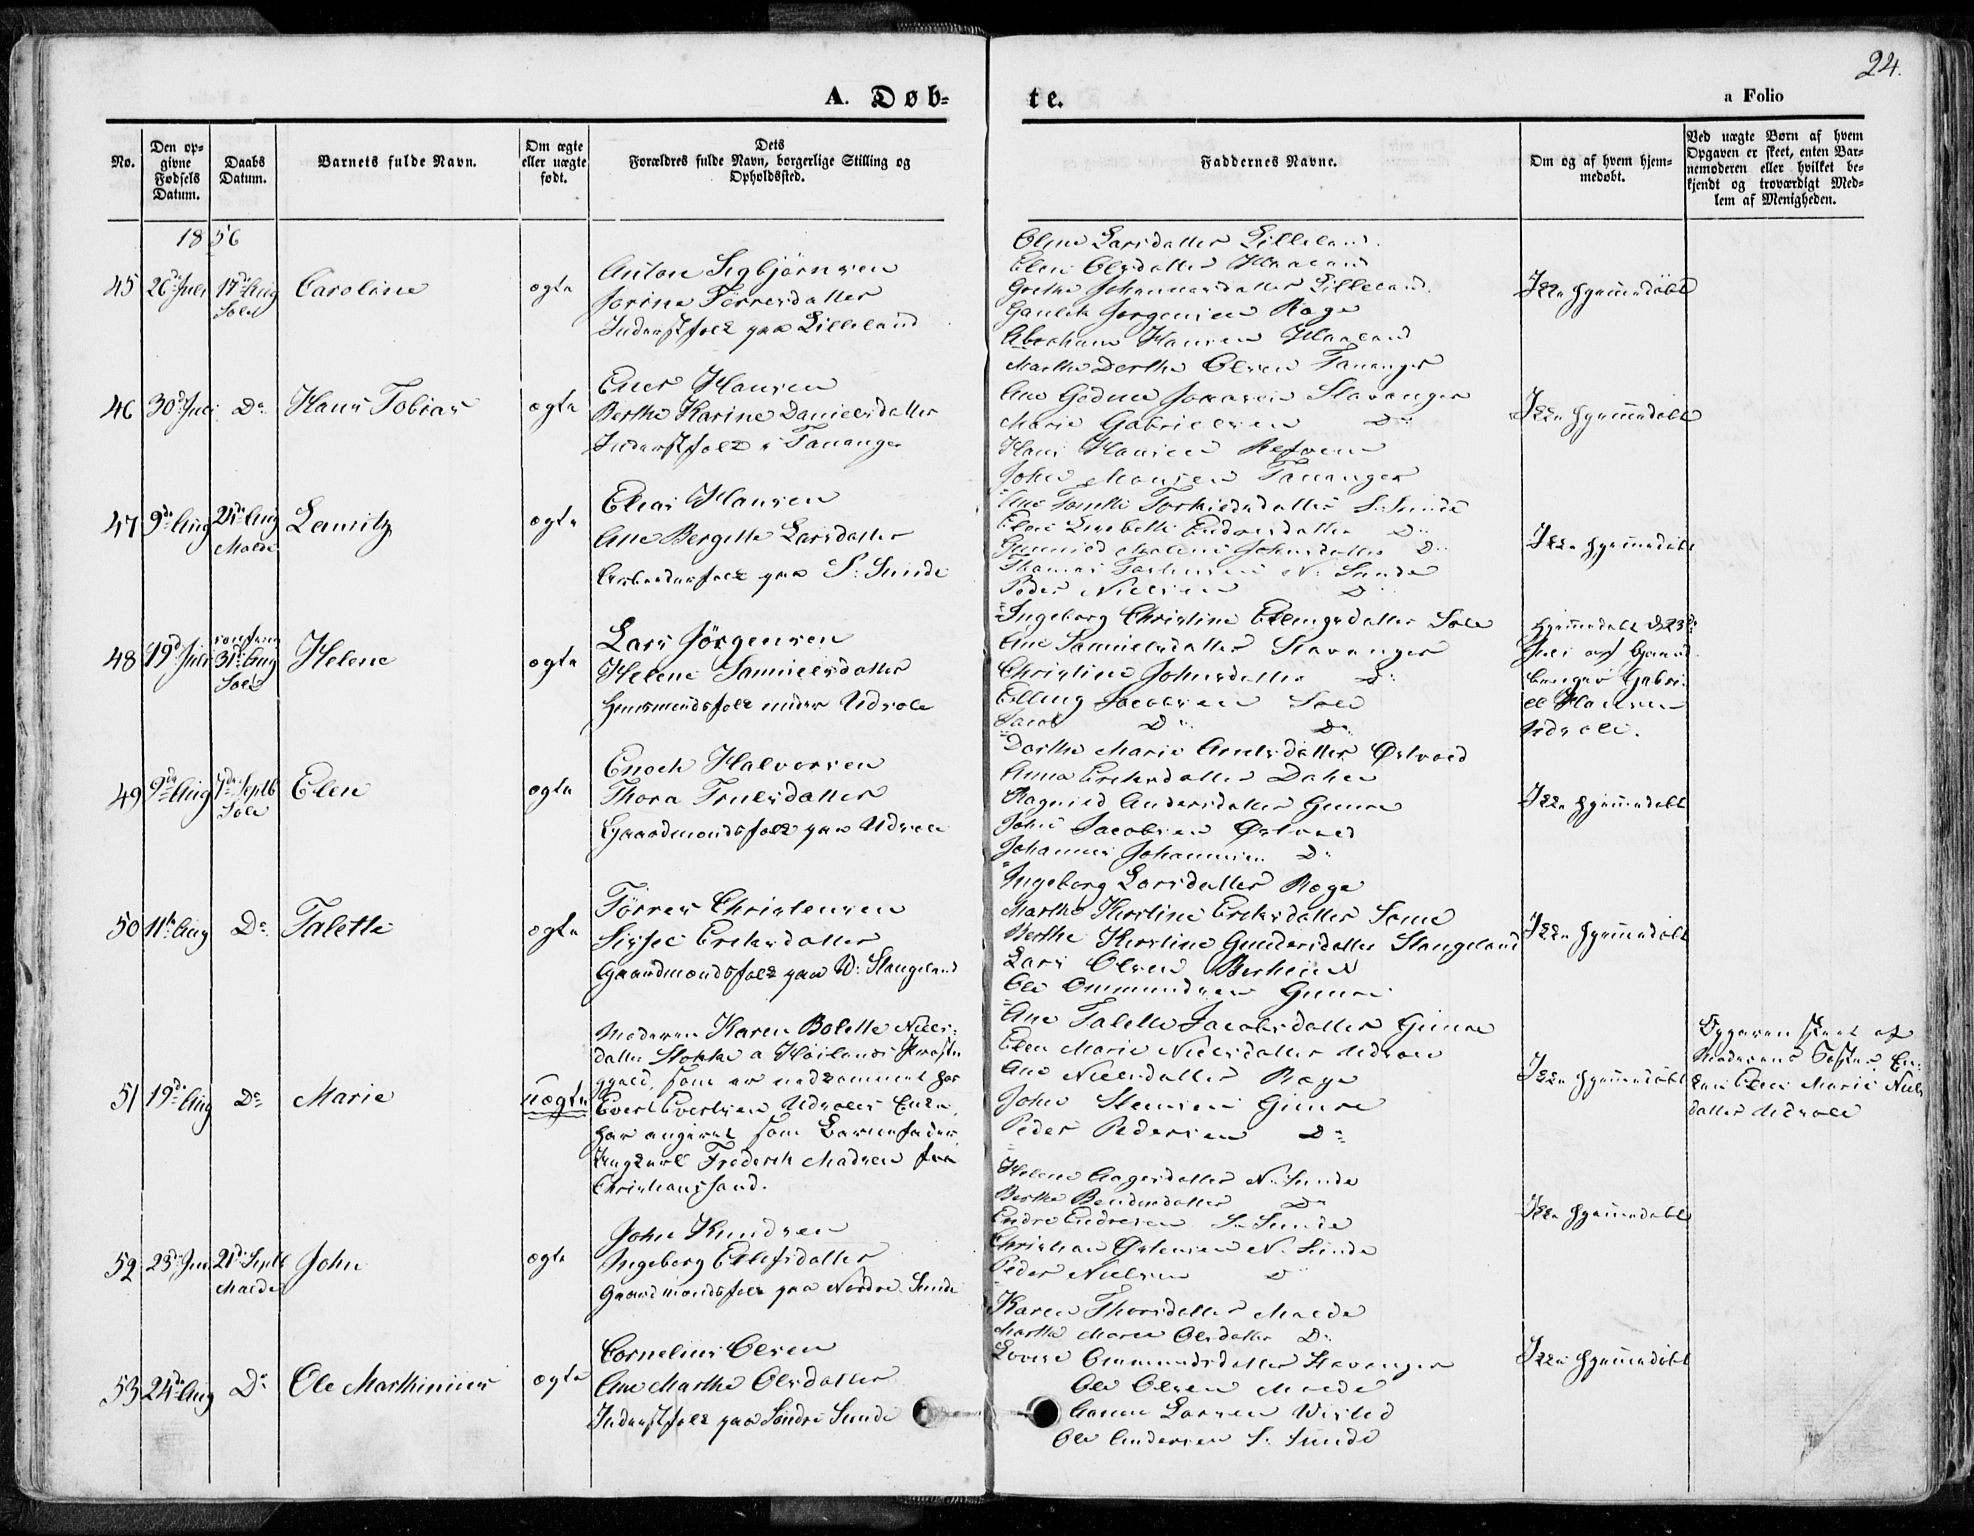 24.
A. Døb-
te.
a Folio
No.
Den op-
givne
Fødsels
Datum.
Daabs
Datum.
Barnets fulde Navn.
Om ægte
eller uægte
født.
Dets
Forældres fulde Navn, borgerlige Stilling og
Opholdssted.
Faddernes Navne.
Om og af hvem hjem-
medøbt.
Ved uægte Børn af hvem
Opgaven er skeet, enten Bar-
nemoderen eller hvilket be-
kjendt og troværdigt Med-
lem af Menigheden.
1856
45 26de Juli 17de Aug Caroline ægte
Sole
Anton Sigbjørnsen
Jorine Tørresdatter
Inderstfolk paa Lilleland
Lilleland
Elen Olsdatter Haaland
Grethe Johannesdatter Lilleland
Gaulik Jørgensen Røge
Abraham Hansen Haaland
Ikke hjemmedøbt
46 30d Juli Do Hans Tobias ægte
Hansen
Berthe Karine Danielsdatter
Inderstfolk i Tananger
Marthe Dorthe Olsen Tananger
Ane Stavanger
Marie Gabrielsen Do
Hans Hansen
John Monsen Tananger
Ikke hjemmedøbt
47 9de Aug 24de Aug Lauritz ægte
Malde
Elias Hansen
Ane Bergette Larsdatter
Arbeidsfolk paa S: Sunde
S. Sunde
Elen Lisebette Endresdatter Do
Gunnild Malene Johnsdatter Do
Thomas N: Sunde
Peder Nielsen Do
Ikke hjemmedøbt
48 19d Juli 31te Aug Helene ægte
Sole
Lars Jörgensen
Helene Samuelsdatter
Huusmandsfolk under Udsole
Ingeborg Christine Ellingsdatter Sole
Ane Samuelsdatter Stavanger
Christine Johnsdatter Do
Elling Jacobsen Sole
Jacob Do Do
Hjemmedøbt d 23de
Juli af Gaard
bruger Gabri-
el Hansen
Udsole.
49 9de Aug 7de Septb Elen ægte
Sole
Enoch Halvorsen
Thora Truelsdatter
Gaardmandsfolk paa Udsole
Dorthe Marie Østvold
Anna Eriksdatter
Ragnild Andersdatter Gimre
John Jacobsen Østvold
Johannes Johannesen Do
Ikke hjemmedøbt
50 11te Aug Do Talette ægte
Tørres Christensen
Sissel Eriksdatter
Gaardmandsfolk paa N: Stangeland
Ingeborg Larsdatter Røge
Marthe Kirstine Eriksdatter Sømme
Berthe Kirstine Gundersdatter Stangeland
Lars Olsen
Ole Ommundsen Gimre
Ikke hjemmedøbt
51 19de Aug Do Marie uægte
Moderen Karen Bolette Niels-
datter Stokke a Høilands Præste
gjeld, som er nedkommet hos
Evert Evertsen Udsoles Enke,
har angivet som Barnefader
Ungkarl Frederik Madsen fra
Christianssand.
Ane Talette Jacobsdatter Gimre
Elen Marie Nielsdatter Udsole
Ane Nielsdatter Røge
John Gimre
Peder Pedersen Do
Ikke hjemmedøbt
Opgaven skeet af
Moderens Søster En-
ken Elen Marie Niels
datter Udsole
52 23de Jun 21de Septb John ægte
Malde
John Knudsen
Ingeborg Ellefsdatter
Gaardmandsfolk paa Nordre Sunde
Helene Aagesdatter N. Sunde
Berthe Do
Endre Endresen S. Sunde
Christian Østensen N. Sunde
Peder Nielsen Do
Ikke hjemmedøbt
53 24de Aug Do Ole Marthinius ægte
Cornelius Olsen
Ane Marthe Olsdatter
Inderstfolk paa Søndre Sunde
Karen Thorsdatter Malde
Marthe Maria Olsdatter Do
Lovise Ommundsdatter Stavanger
Ole Olsen Malde
Larsen
Ole Andersen S: Sunde
Ikke hjemmedøbt